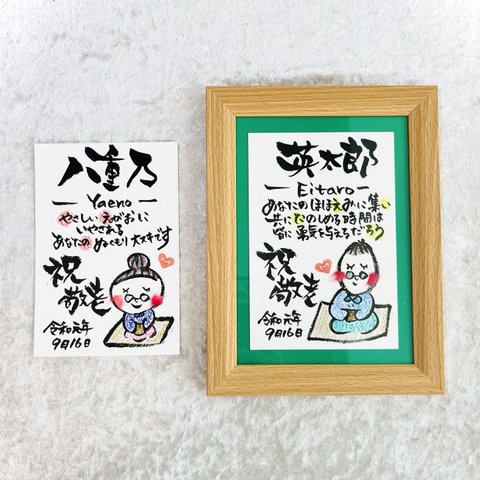 八重乃
Yaeno
やさしい えがおに
いやされる
あなたの ぬくもり 大スキです
祝
敬老
令和元年
9月16日
英太郎
Eitaro
あなたのほほえみに集い
共にたのしめる時間は
皆に勇気を与えるだろう
祝
敬老
令和元年
9月16日